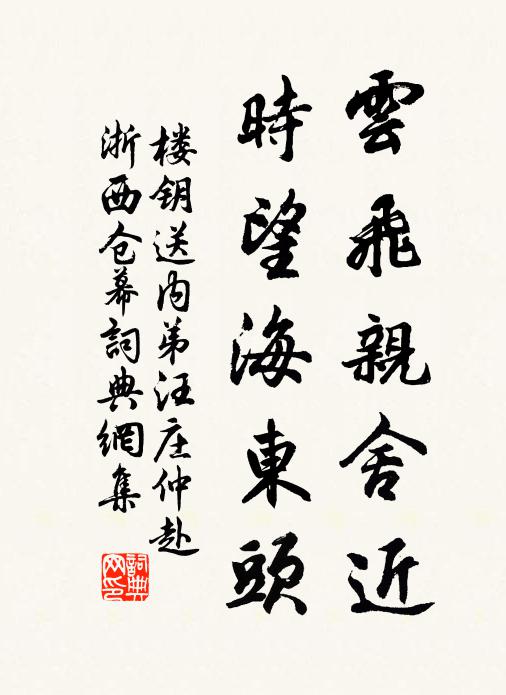 雲飛親舍近
時望海東頭
楼钥送内弟汪庄仲赴
浙西仓幕詞典網集
詞典网印